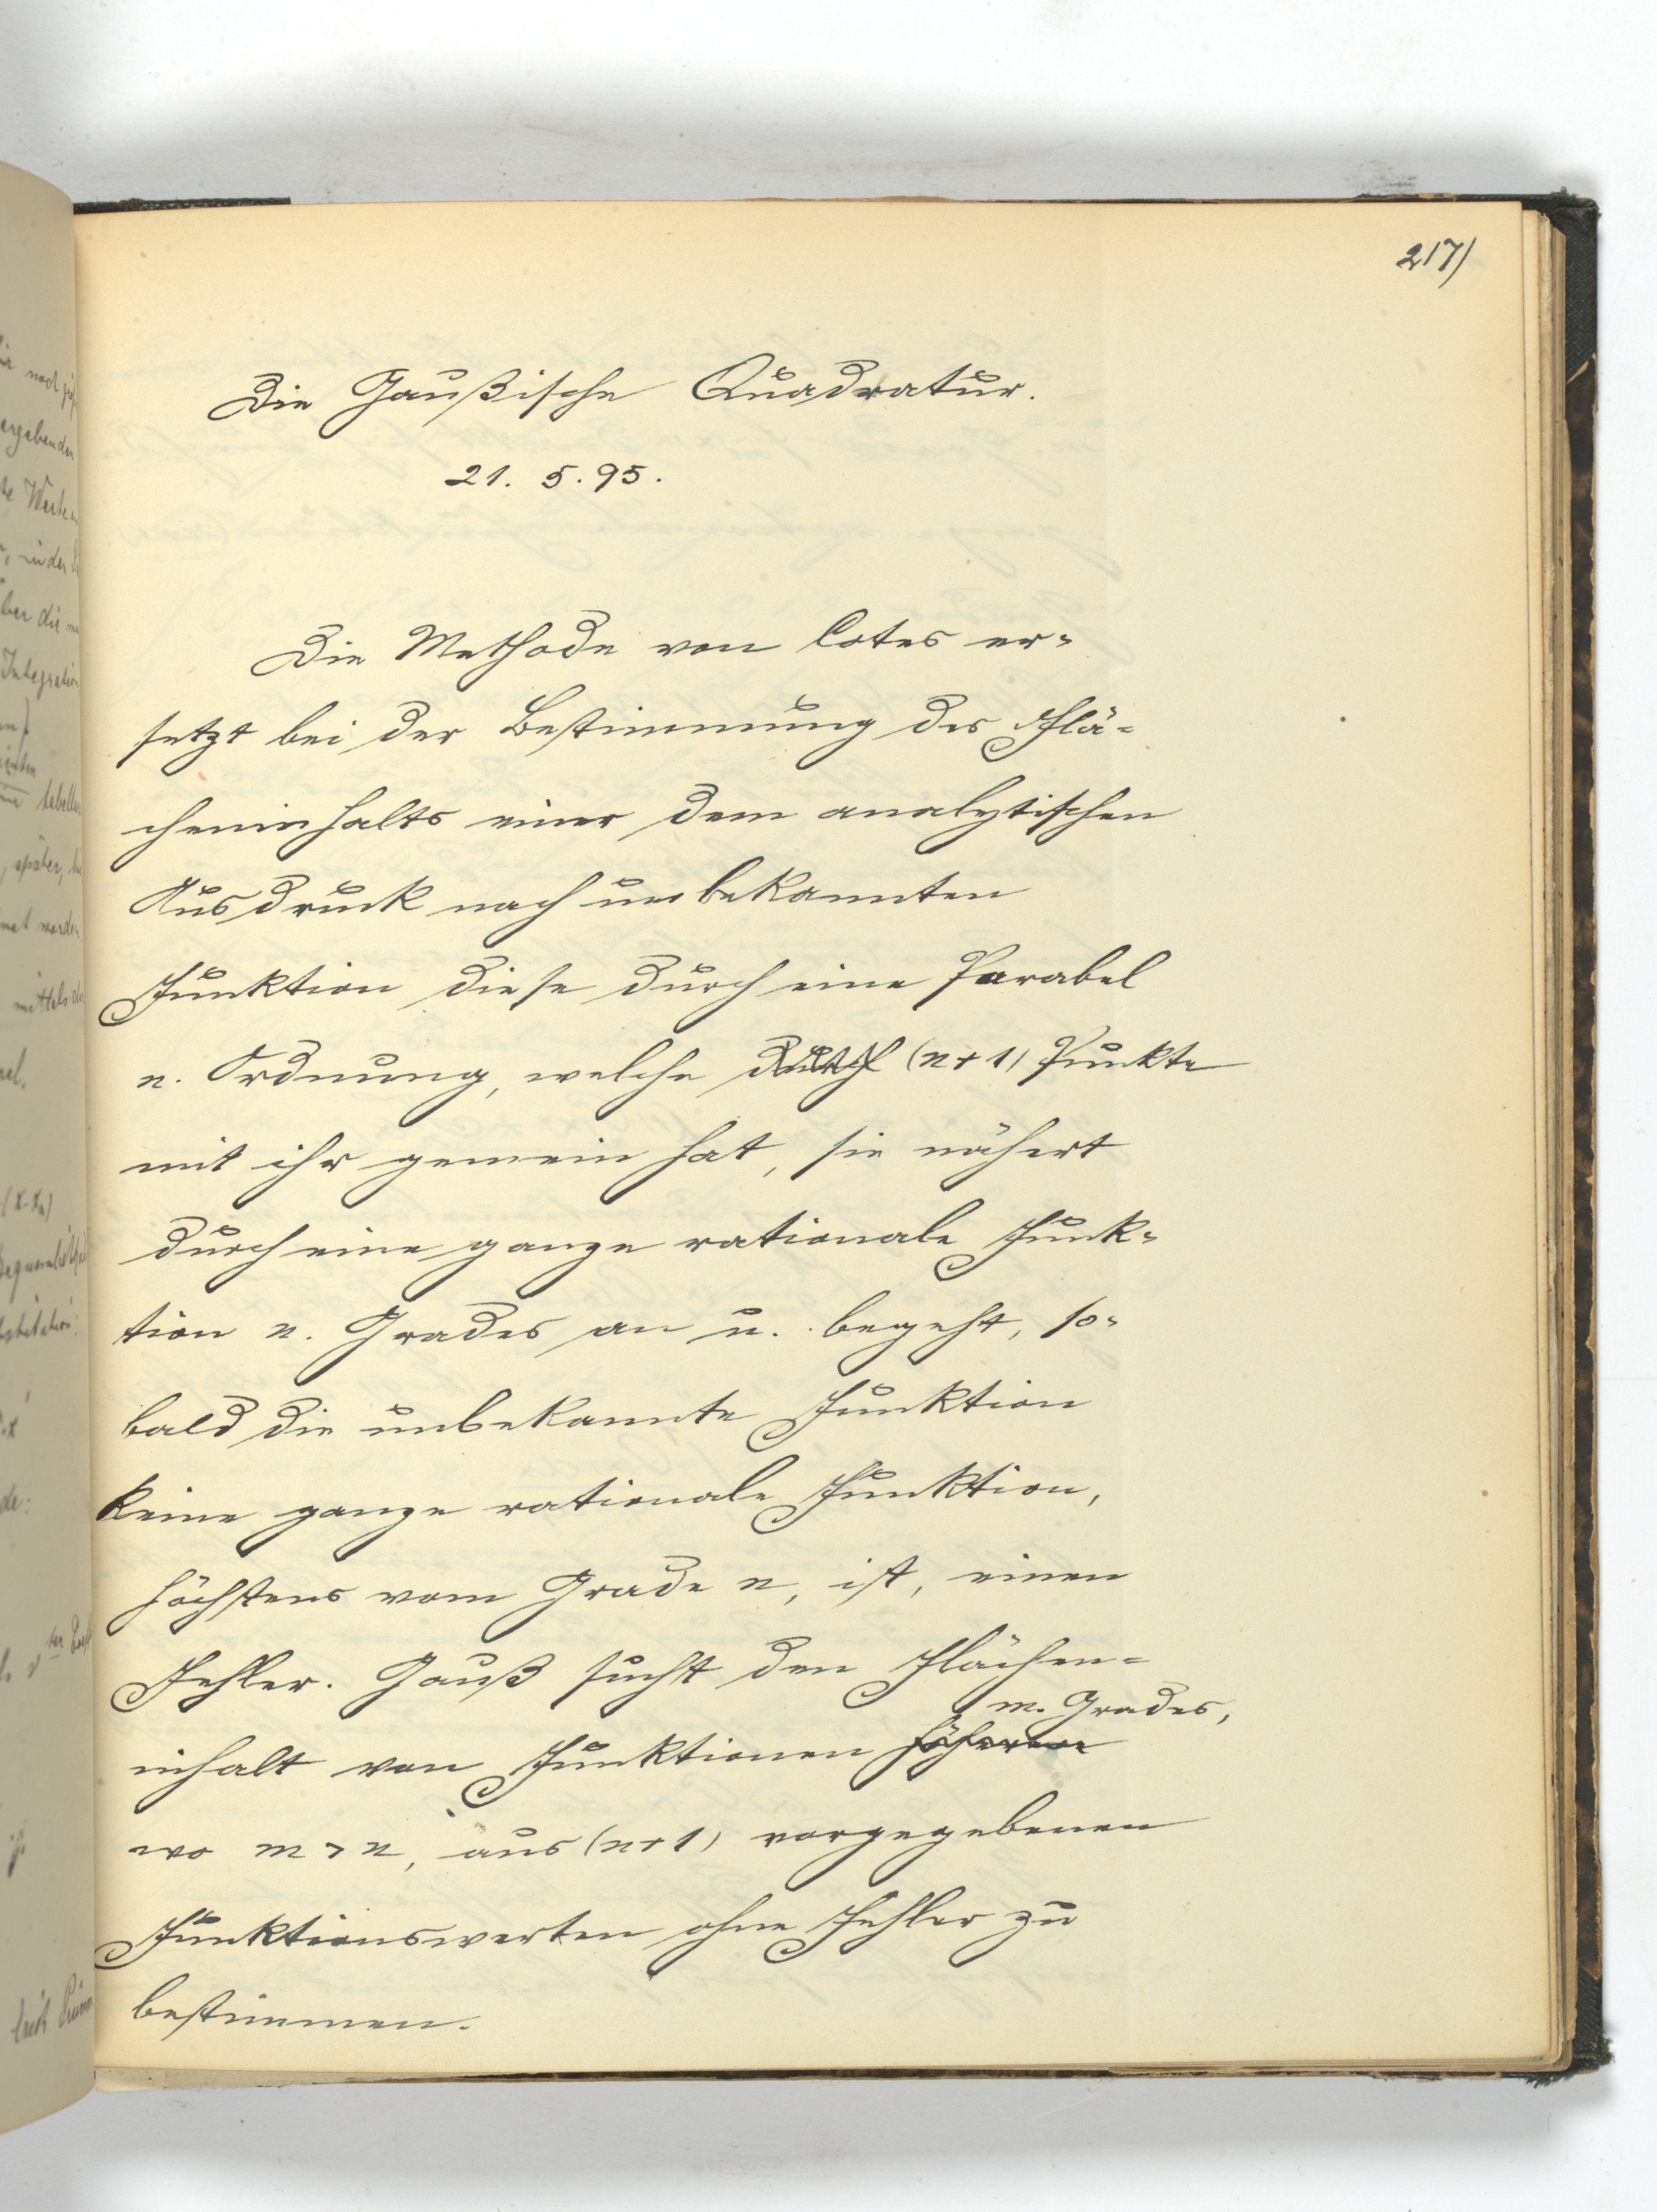 217)
Die Gaußische Quadratur.
21. 5. 95.
Die Methode von Cotes er-
setzt bei der Bestimmung des Flä-
cheninhalts einer dem analytischen
Ausdruck nach unbekannten
Funktion diese durch eine Parabel
n. Ordnung, welche durch (n+1) Punkte
mit ihr gemein hat, sie nähert
durch eine ganze rationale Funk-
tion n. Grades an u. begeht, so-
bald die unbekannte Funktion
keine ganze rationale Funktion,
höchstens vom Grade n, ist, einen
Fehler. Gauß sucht den Flächen-
m. Grades,
inhalt von Funktionen höheren
wo m > n, aus (n+1) vorgegebenen
Funktionswerten ohne Fehler zu
bestimmen.